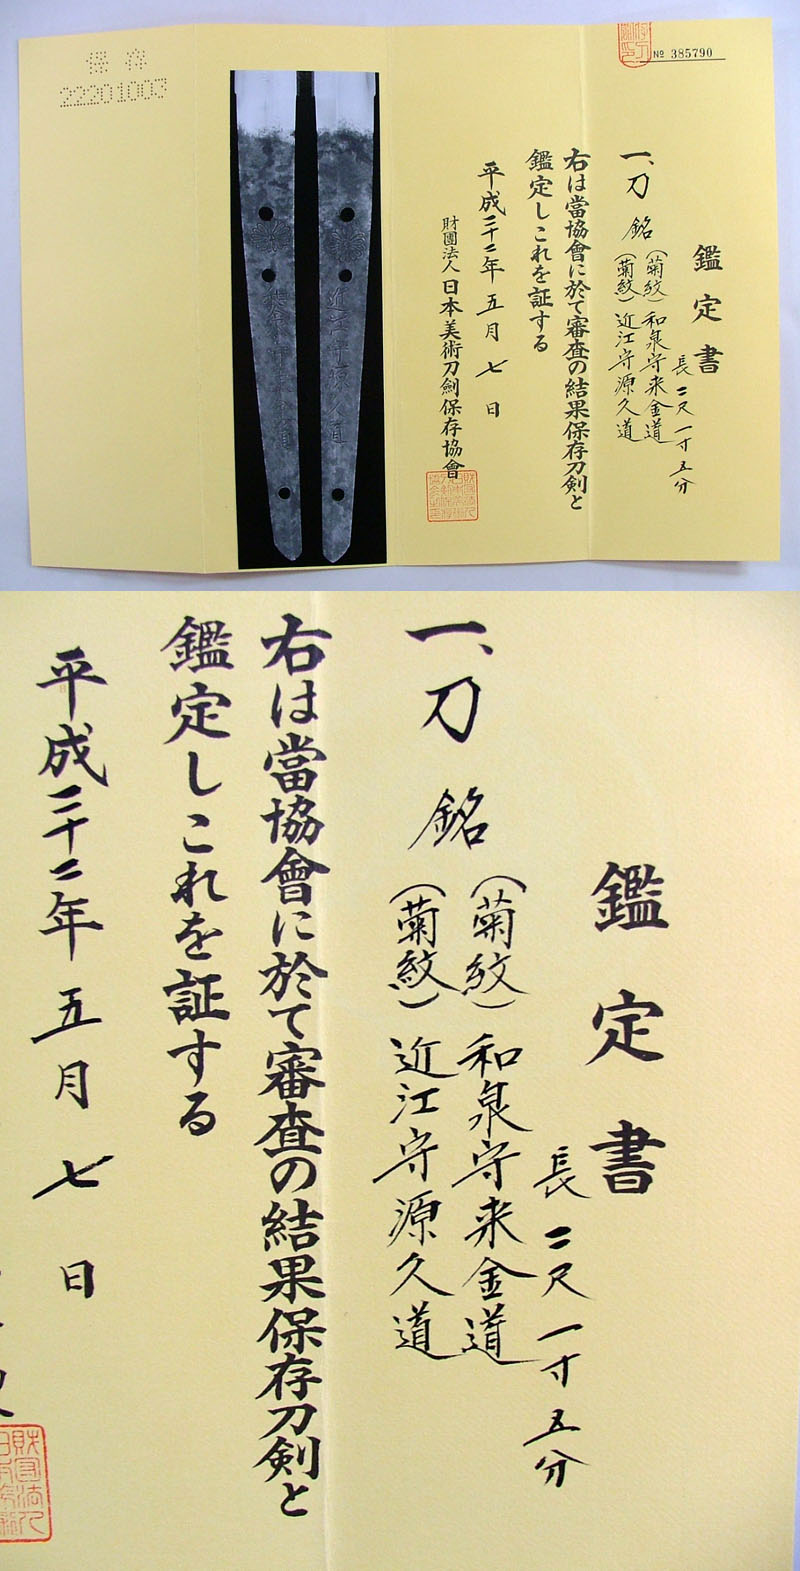 保存
22201003
№ 385790
鑑定書
長二尺一寸五分
一、刀 銘
(菊紋)和泉守来金道
(菊紋)近江守源久道
右は當協會に於て審査の結果保存刀剣と
鑑定しこれを証する
平成二十二年五月七日
財團法人日本美術刀劍保存協會
近江守源久道
鑑定書
長二尺一寸五分
一、刀 銘
(菊紋)和泉守来金道
(菊紋)近江守源久道
右は當協會に於て審査の結果保存刀剣と
鑑定しこれを証する
平成二十二年五月七日